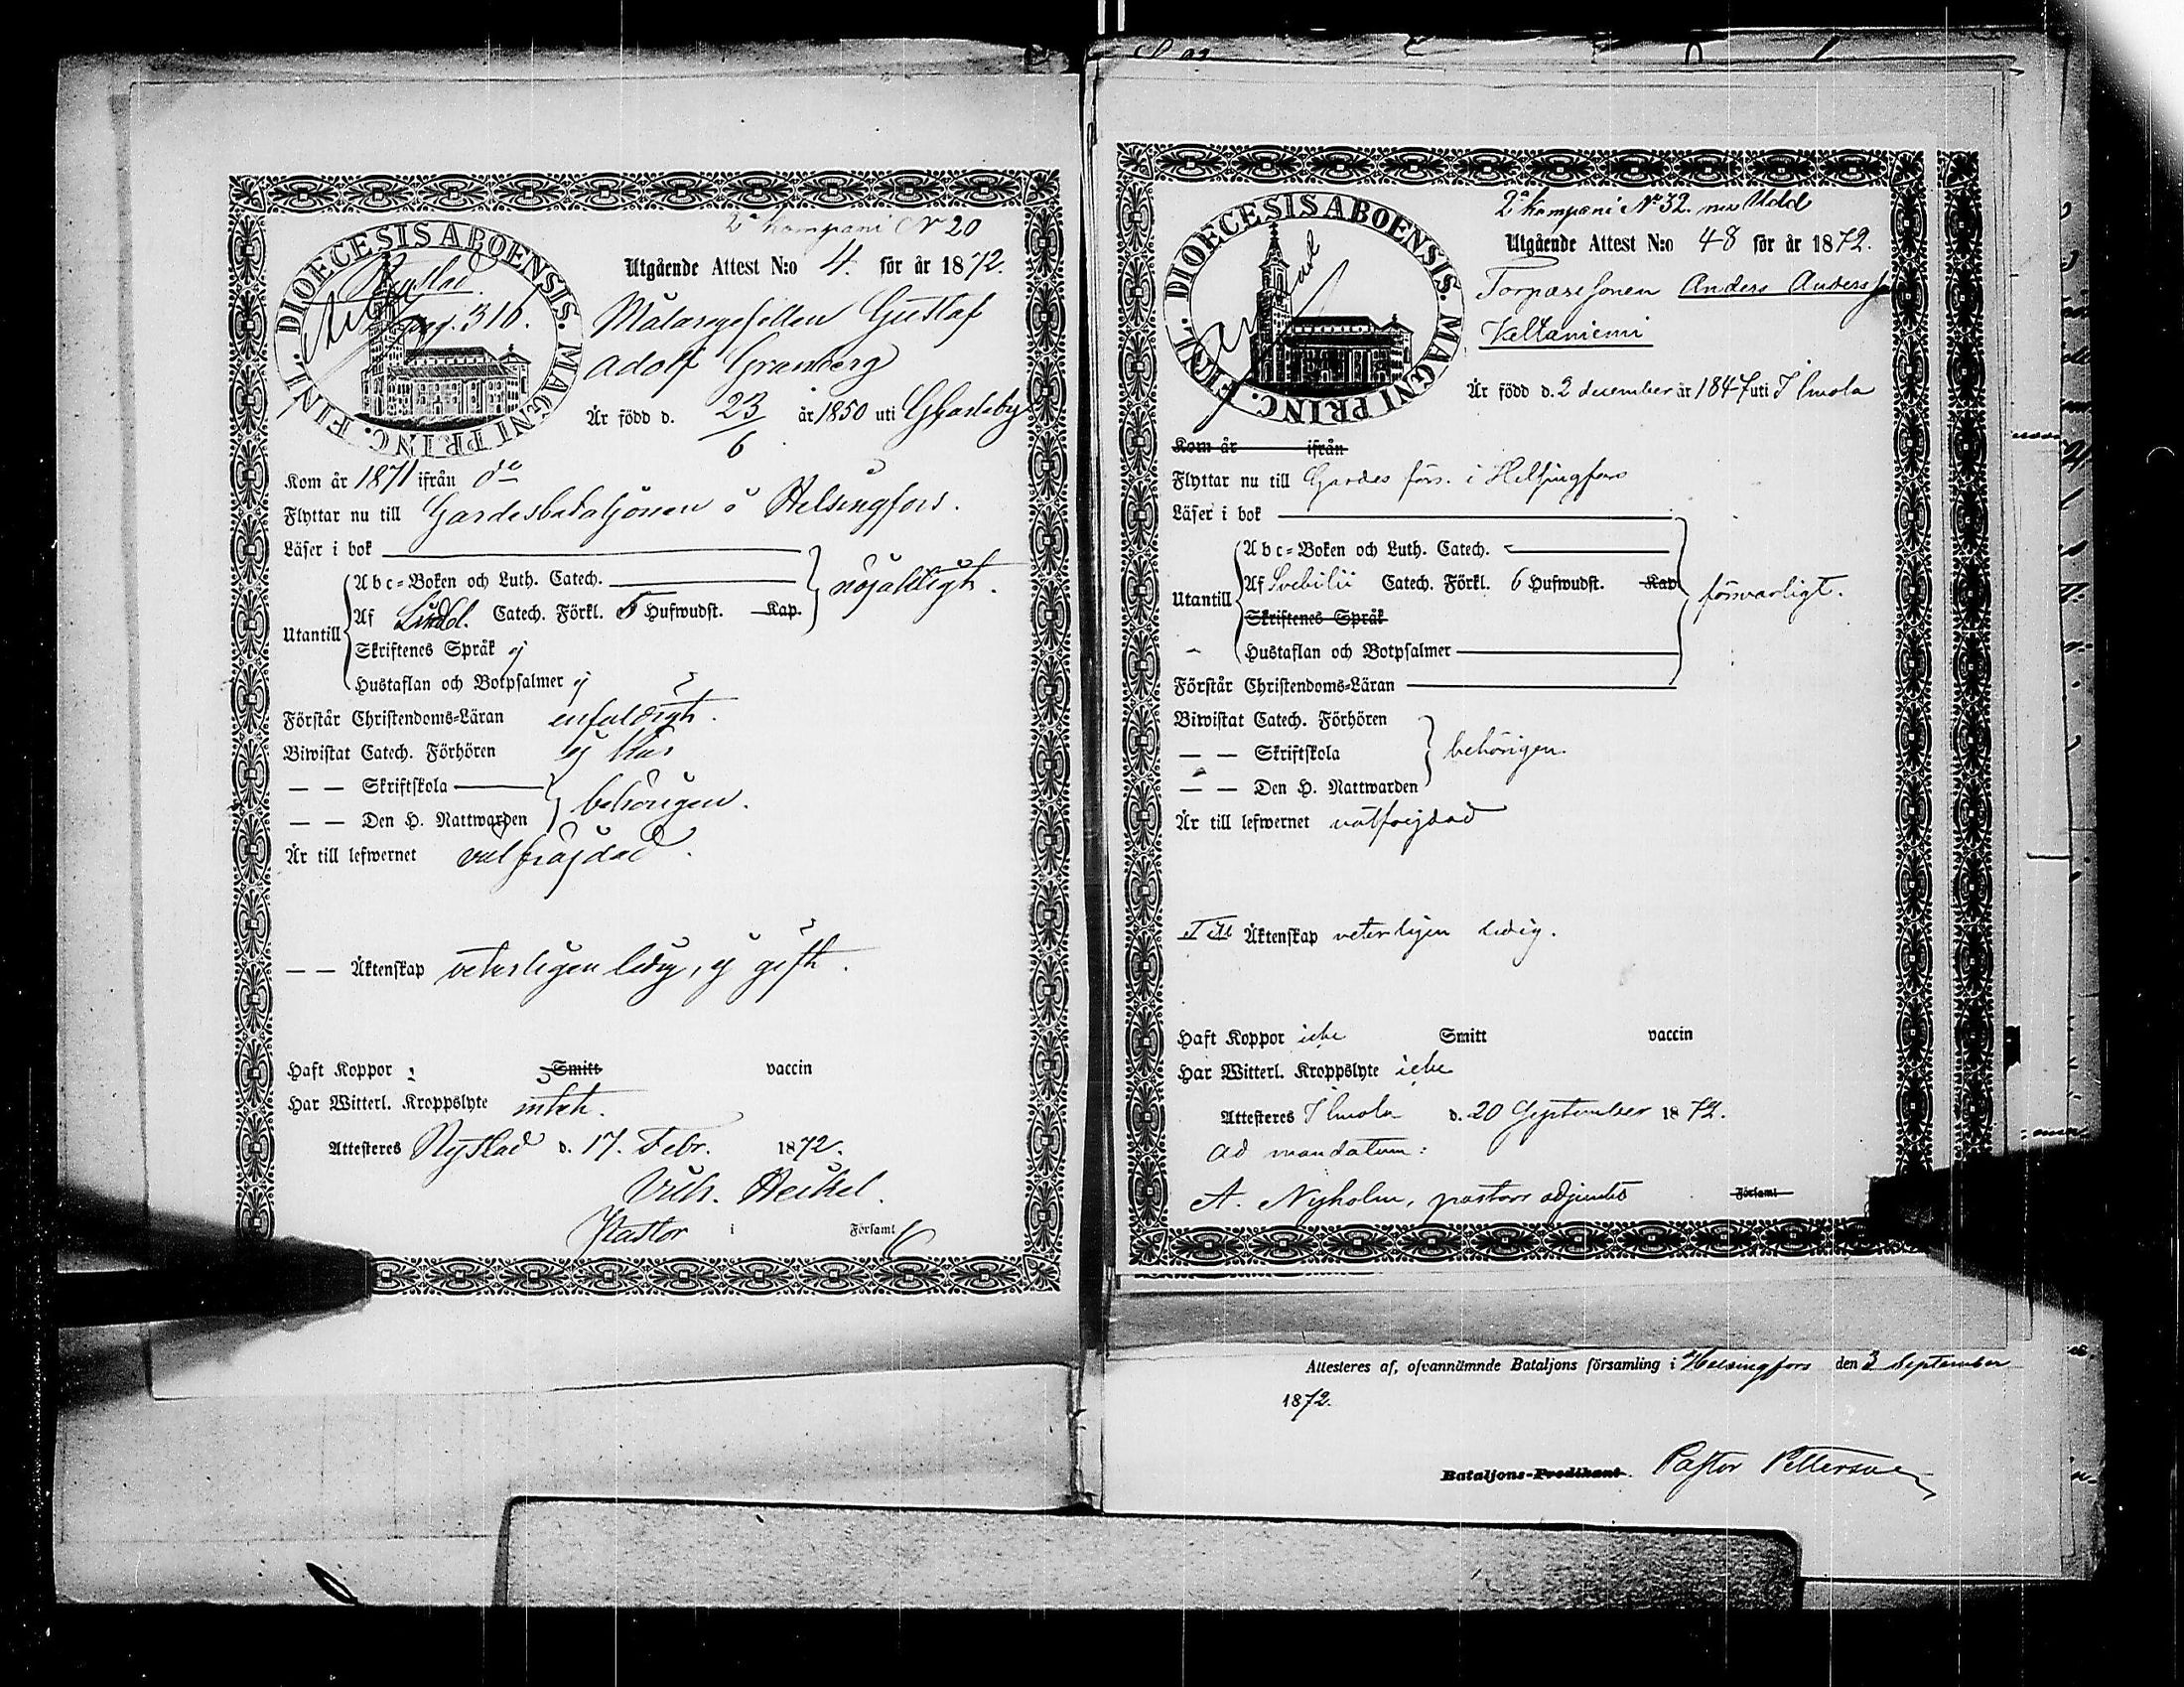 2a kompani No 20
DIOECESIS ABOENSIS. MAGNI PRINC. FINL.
Nystad
pag. 316.
Utgående Attest N:o 4. för år 1872.
Målaregesellen Gustaf
Adolf Granberg
Är född d. 23/6 år 1850 uti GKarleby
Kom år 1871 ifrån do
Flyttar nu till Gardesbataljonen i Helsingfors.
Läser i bok
Abc-Boken och Luth. Catech.
nöjaktigt.
Utantill
Af Lindbl. Catech. Förkl. 5 Hufwudst. Kap.
Skriftenes Språk ej
Hustaflan och Botpsalmer ej
Förstår Christendoms-Läran enfaldigt.
Biwistat Catech. Förhören ej här
— — Skriftskola
behörigen.
— — Den H. Nattwarden
Är till lefwernet välfräjdad.
— — Äktenskap veterligen ledig, ej gift.
Haft Koppor Smitt vaccin
Har Witterl. Kroppslyte intet.
Attesteres Nystad d. 17. Febr. 1872.
Vilh. Heikel.
Pastor i Församl
2a kompani No 32. Udd
DIOECESIS ABOENSIS. MAGNI PRINC. FINL.
Utgående Attest N:o 48 för år 1872.
Torparesonen Anders Andersson
Valtaniemi
Är född d. 2 december år 1847 uti Ilmola
Kom år ifrån
Flyttar nu till Gardes förs. i Helsingfors
Läser i bok
Abc-Boken och Luth. Catech.
Utantill
Af Svebilii Catech. Förkl. 6 Hufwudst. Kap
försvarligt.
Skriftenes Språk
Hustaflan och Botpsalmer
Förstår Christendoms-Läran
Biwistat Catech. Förhören
— — Skriftskola
behörigen.
— — Den H. Nattwarden
Är till lefwernet välfrejdad
Till Äktenskap veterligen ledig.
Haft Koppor icke Smitt vaccin
Har Witterl. Kroppslyte icke
Attesteres Ilmola d. 20 September 1872.
Ad mandatum:
A. Nyholm, pastors adjunkt Församl
Attesteres af, ofvannämnde Bataljons församling i Helsingfors den 3 September
1872.
Bataljons-Predikant. Pastor Pettersson